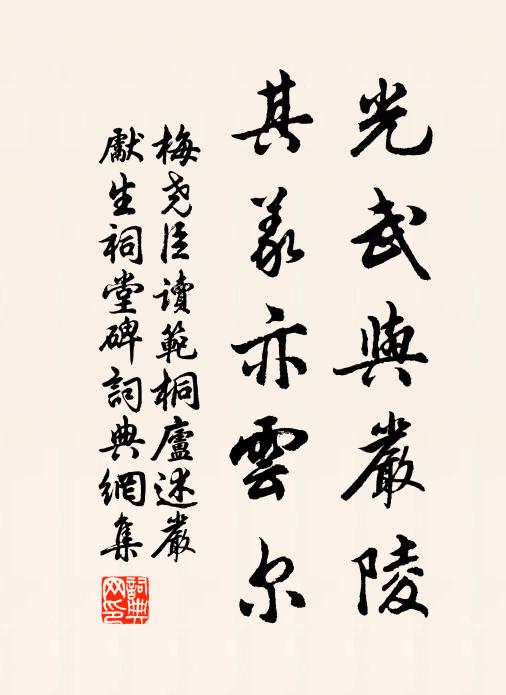 光武與嚴陵
其義亦雲尔
梅尧臣讀範桐廬述嚴
獻生祠堂碑詞典網集
詞典网印